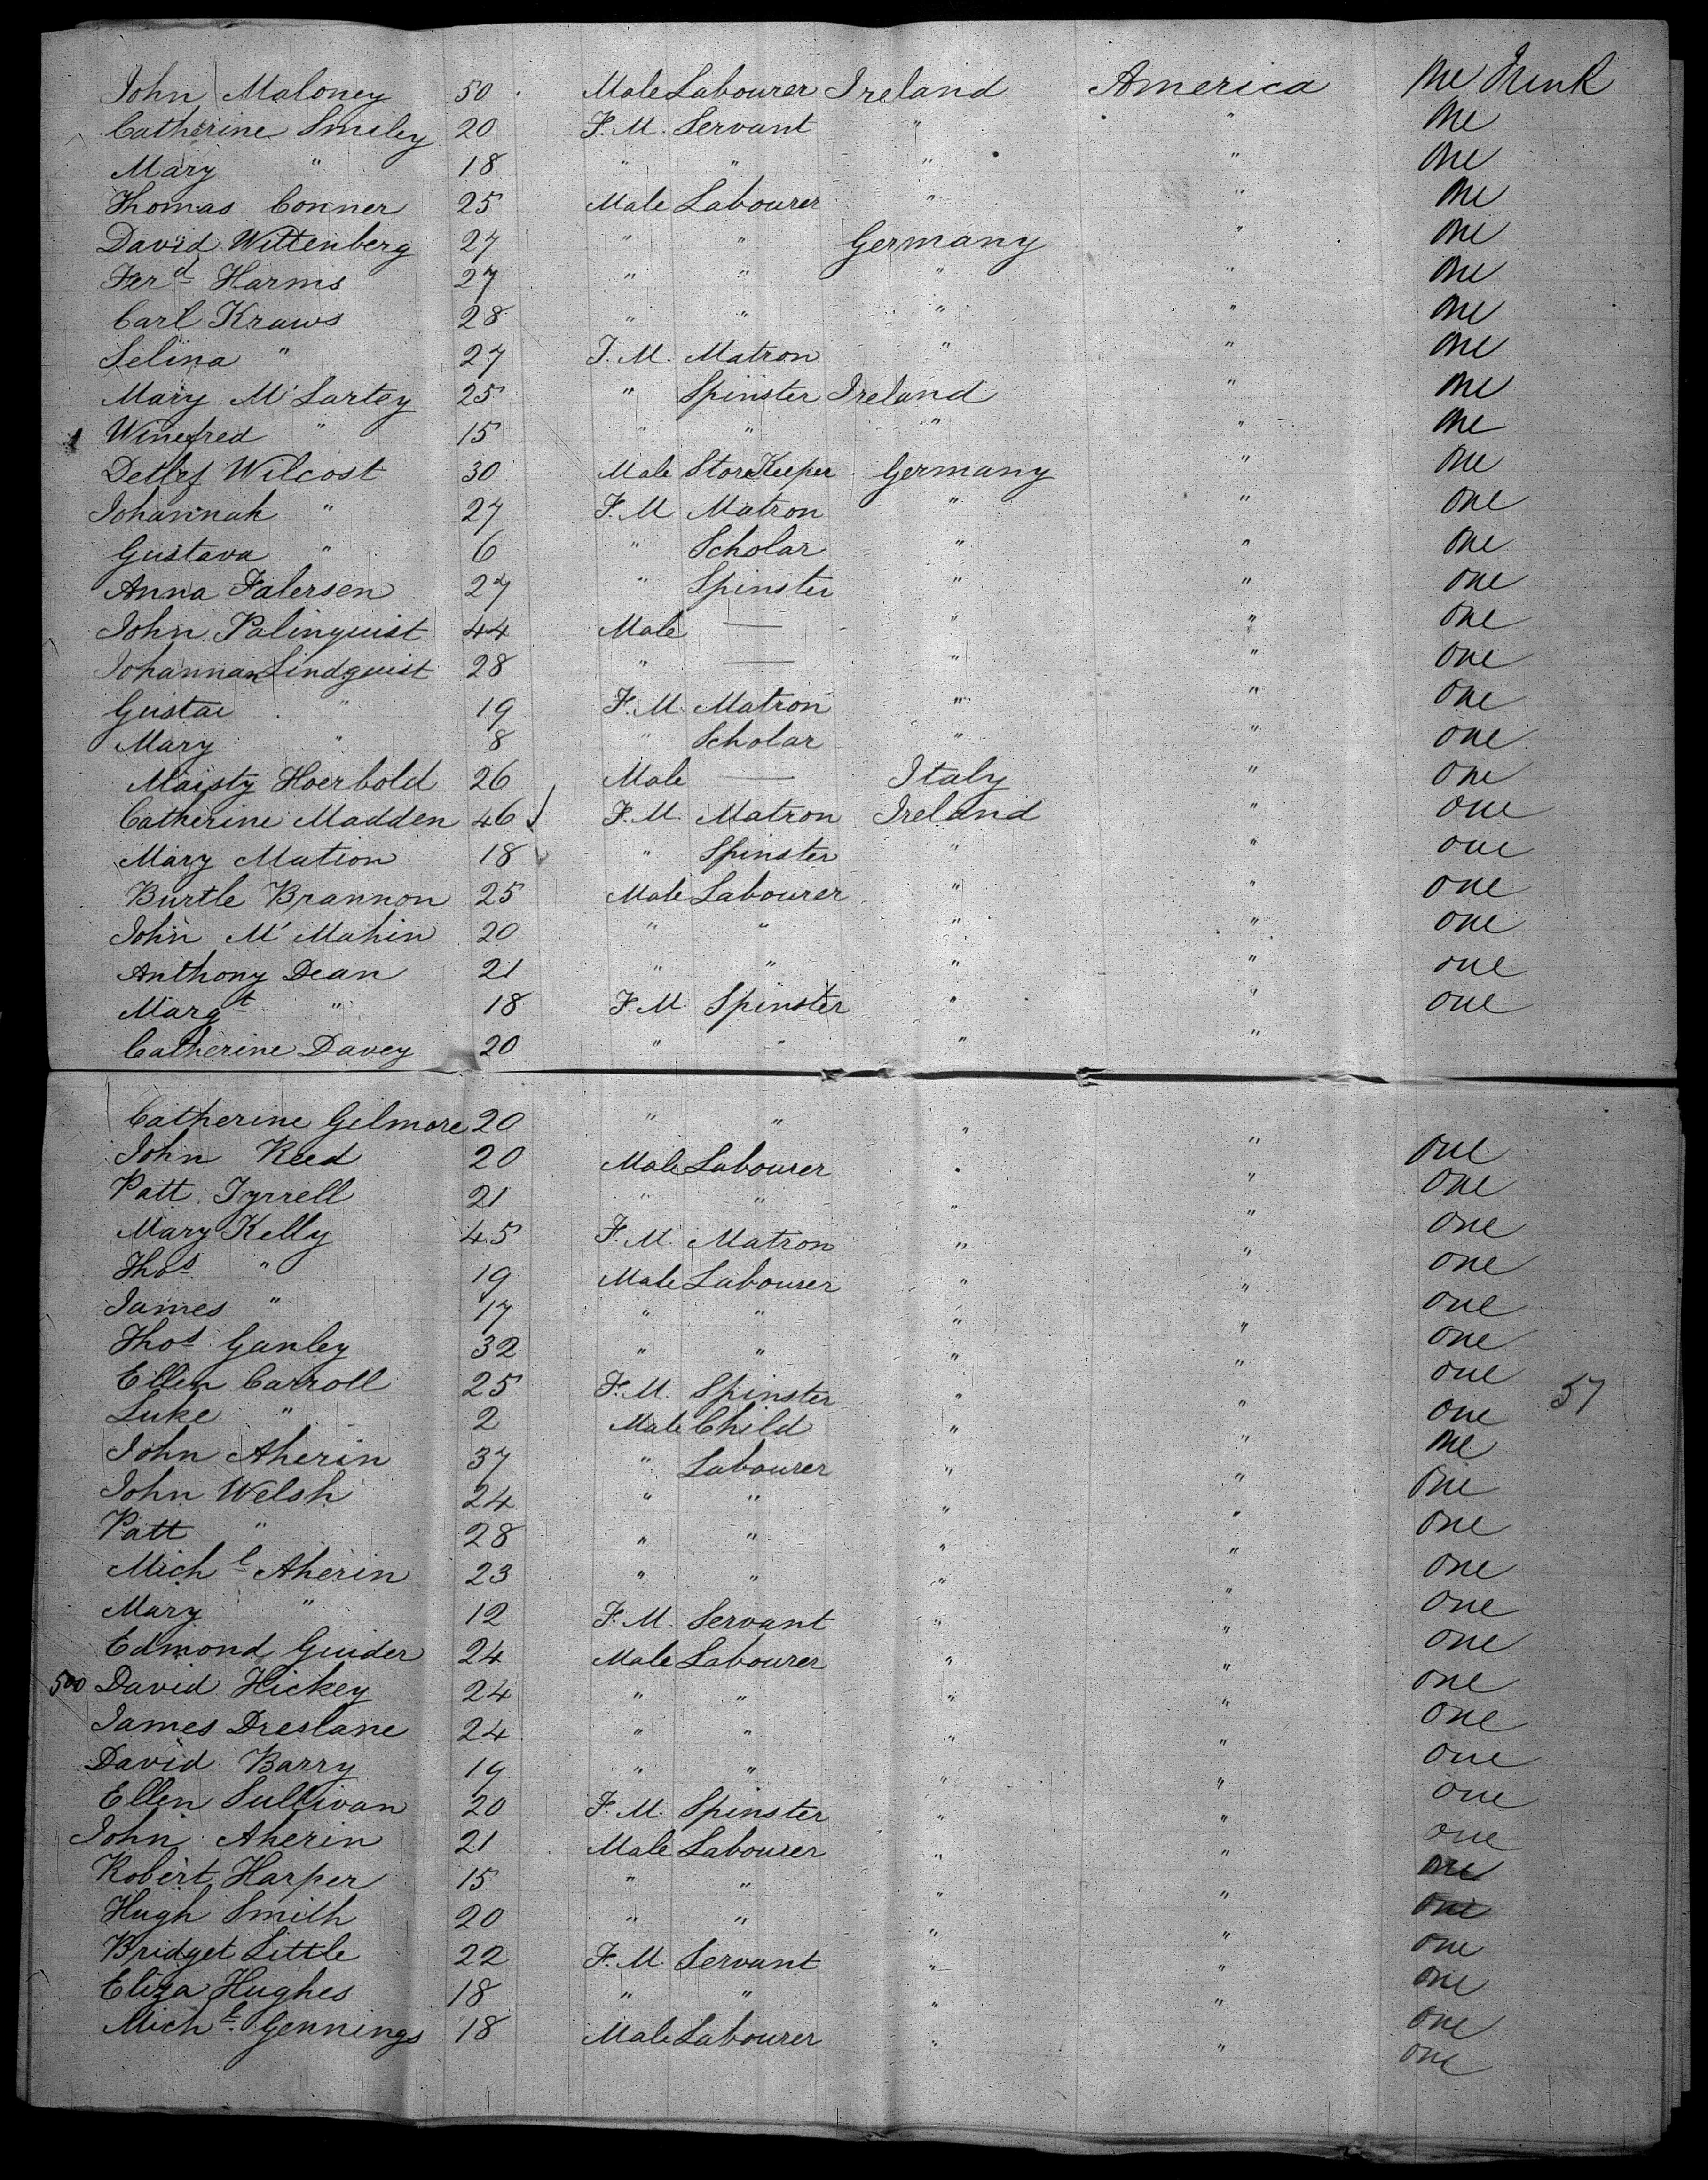 John Maloney 50 Male Labourer Ireland America One Trunk
Catherine Smiley 20 F.M. Servant " " One
Mary " 18 " " " " One
Thomas Conner 25 Male Labourer " " One
David Wittenberg 27 " " Germany " One
Ferd Harms 27 " " " " One
Carl Kraws 28 " " " " One
Selina " 27 F.M. Matron " " One
Mary McLartey 25 " Spinster Ireland " One
Winefred " 15 " " " " One
Detlef Wilcost 30 Male StoreKeeper Germany " One
Johannah " 27 F.M Matron " " One
Gustava " 6 " Scholar " " One
Anna Falersen 27 " Spinster " " One
John Palinquist 44 Male — " " One
Johannan Lindquist 28 " — " " One
Gustai " 19 F.M. Matron " " One
Mary " 8 " Scholar " " One
Hoerbold 26 Male — Italy " One
Catherine Madden 46 F.M. Matron Ireland " One
Mary Mation 18 " Spinster " " One
Burtle Brannon 25 Male Labourer " " One
John M' Mahin 20 " " " " One
Anthony Dean 21 " " " " one
Margt " 18 F.M. Spinster " " one
Catherine Davey 20 " " " "
Catherine Gilmore 20 " " " " One
John Reed 20 Male Labourer " " One
Patt Tyrrell 21 " " " " One
Mary Kelly 45 F.M. Matron " " One
Thos " 19 Male Labourer " " One
James " 17 " " " " One
Thos Ganley 32 " " " " One
Ellen Carroll 25 F.M. Spinster " " One 57
Luke " 2 Male Child " " One
John Aherin 37 " Labourer " " One
John Welsh 24 " " " " One
Patt " 28 " " " " One
Michl Aherin 23 " " " " One
Mary " 12 F.M. Servant " " One
Edmond Guider 24 Male Labourer " " One
500 David Hickey 24 " " " " One
James Dreslane 24 " " " " One
David Barry 19 " " " " One
Ellen Sullivan 20 F.M. Spinster " " One
John Aherin 21 Male Labourer " " One
Robert Harper 15 " " " " One
Hugh Smith 20 " " " " One
Bridget Little 22 F.M. Servant " " One
Eliza Hughes 18 " " " " One
Michl Gennings 18 Male Labourer " " One
One